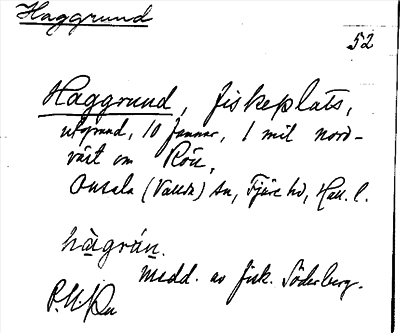 Haggrund
52
Haggrund, fiskeplats,
utgrund, 10 famnar, 1 mil nord-
väst om Rön,
Onsala (Vallda) sn, Fjäre hd, Hall. l.
hàgrún.
Medd. av fisk. Söderberg.